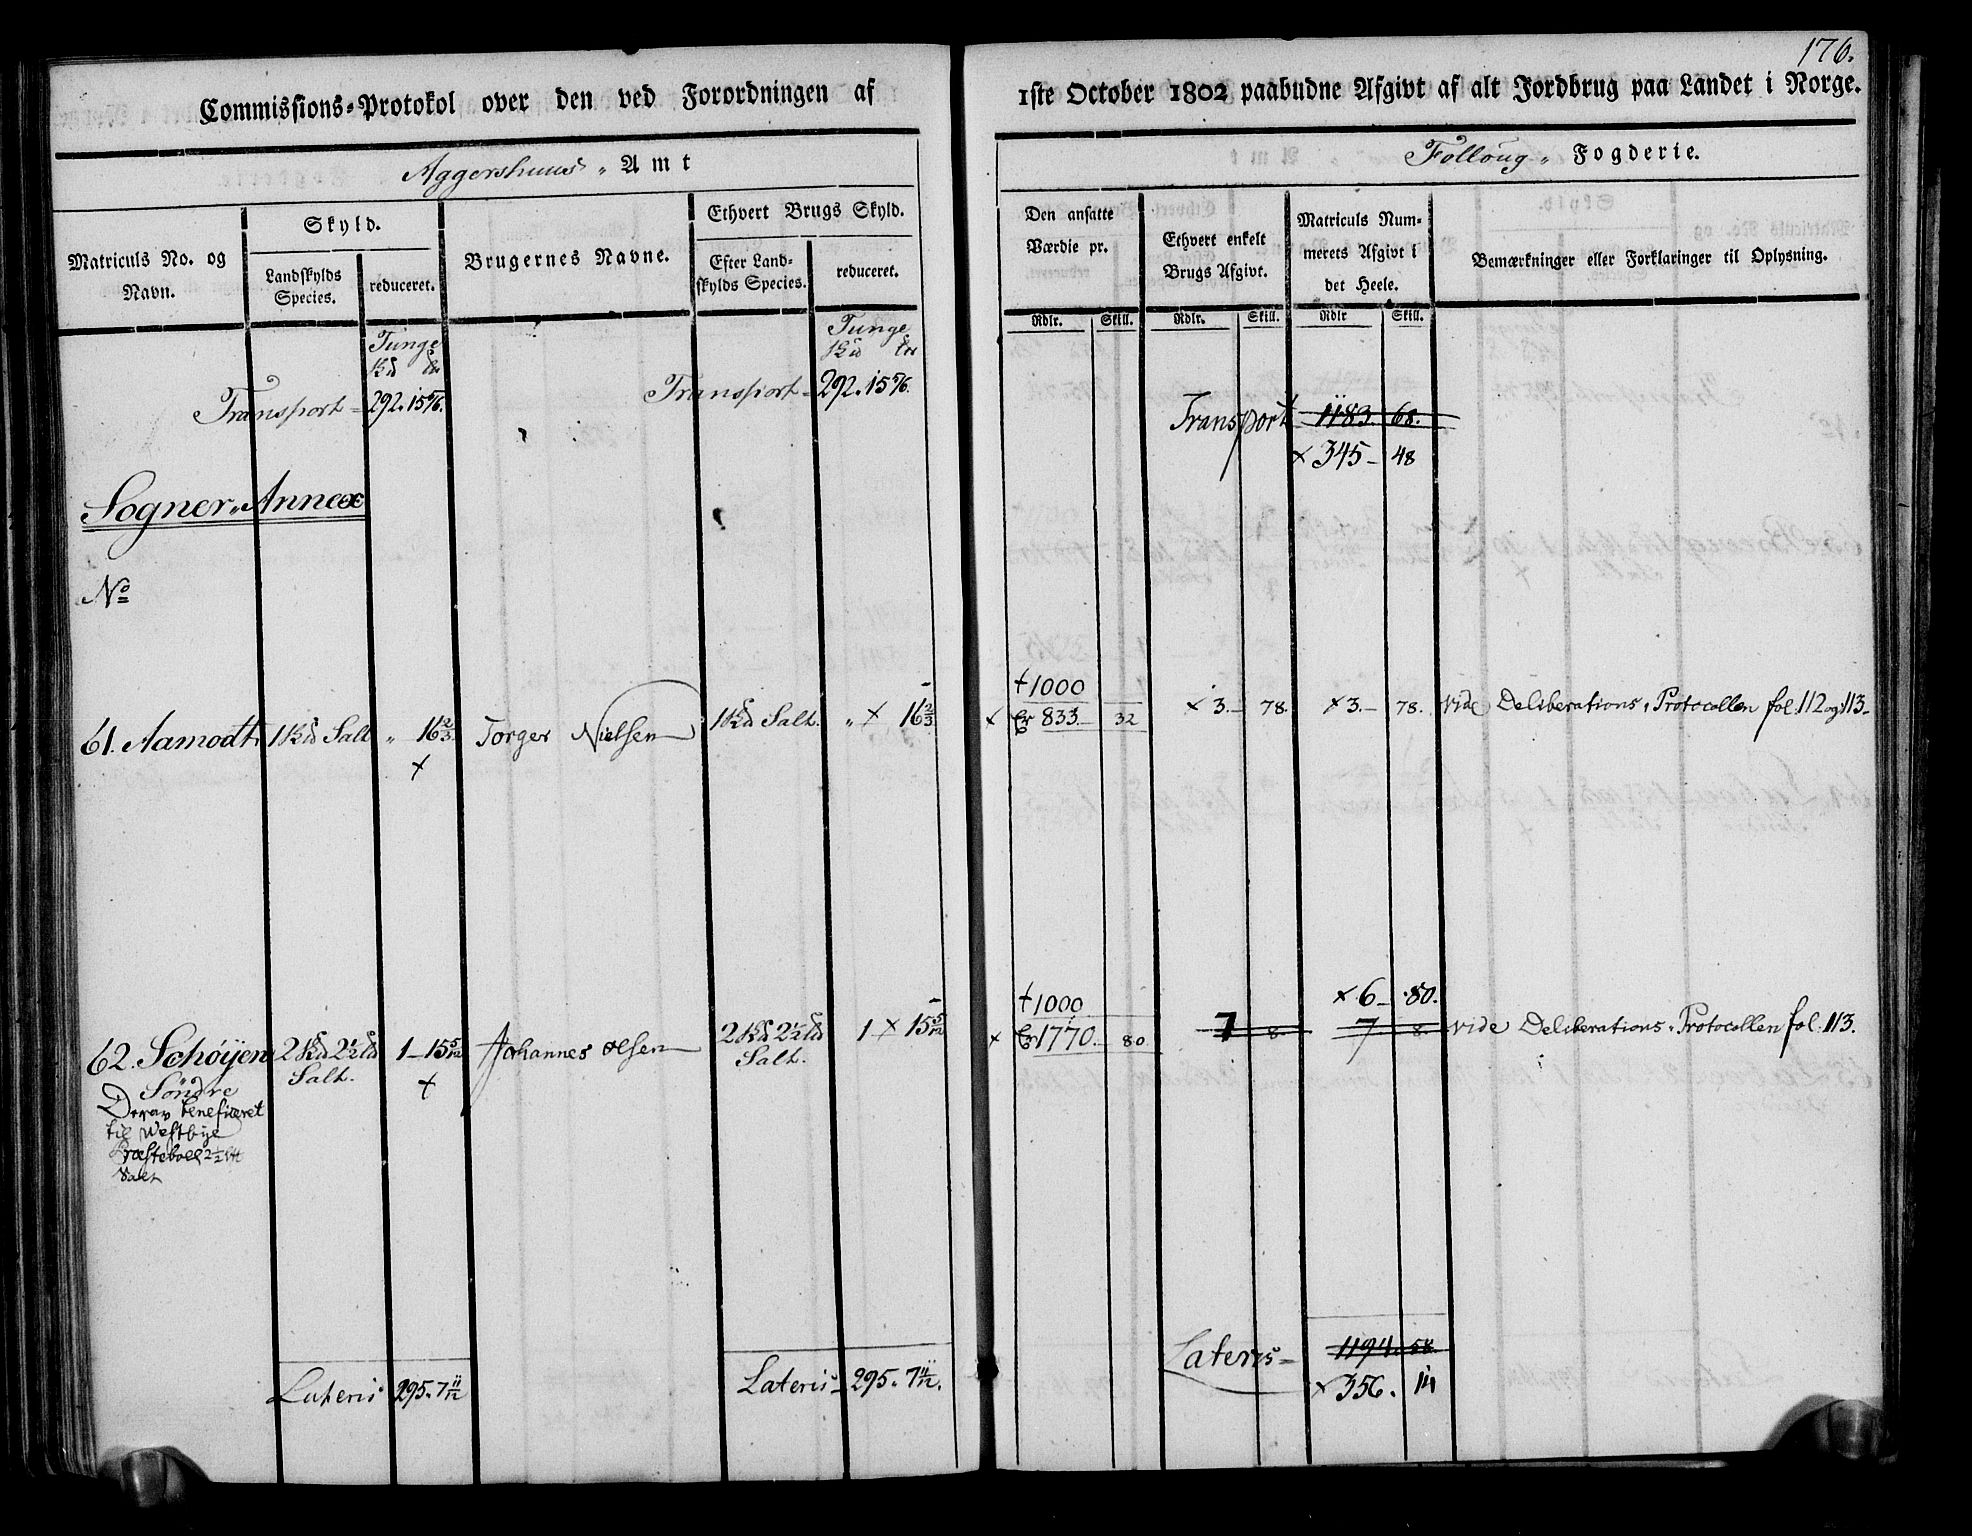 176.
Commissions-Protokol over den ved Forordningen af 1ste October 1802 paabudne Afgivt af alt Jordbrug paa Landet i Norge.
Aggershuus Amt
Follöug Fogderie.
Matriculs No. og Navn.
Skyld.
Landskylds Species.
reduceret.
Brugernes Navne.
Ethvert Brugs Skyld.
Efter Landskylds Species.
reduceret.
Den ansatte Værdie pr.
Ethvert enkelt Brugs Afgivt.
Matriculs Nummerets Afgivt i det Heele.
Bemærkninger eller Forklaringer til Oplysning.
Rdlr. Skill. Rdlr. Skill. Rdlr Skill.
Tunge Tunge
Transport 292. 15 5/6. Transport 292. 15 5/6. Transport 1183. 68.
× 345 - 48
Sogner Annex
No
+ 1000
61. Aamodt 1 Salt 16 2/3 Torger Nielsen 1 Salt. × 16 2/3 × 833 - 32 × 3. - 78. × 3. - 78. vide Deliberations Protocollen fol. 112 og 113
+
+ 1000 × 6 - 80.
62. Schøyen 2 2 1/2 Salt. 1 - 15 5/12 Johannes Olsen 2 2 1/2 Salt. 1 × 15 5/12 × 1770. 80 7 8 7 8. vide Deliberations Protocollen fol. 113.
+
Söndre
Derav beneficeret
til Westbye
Præsteboel 2 1/2
Salt
Lateris 295. 7 11/12 Lateris 295. 7 11/12. Lateris 1194. 58.
× 356. 14